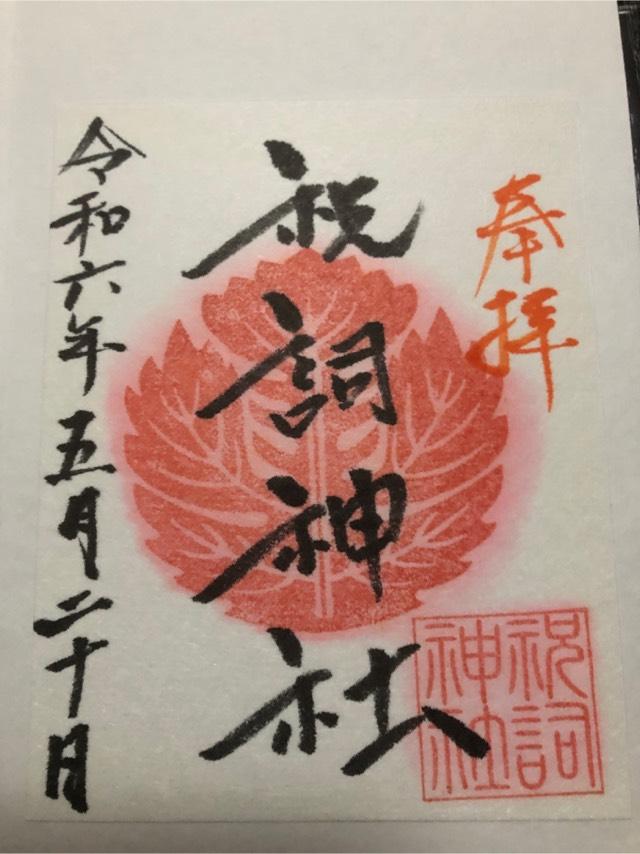 奉拝
祝詞神社
令和六年五月二十日
祝詞
神社